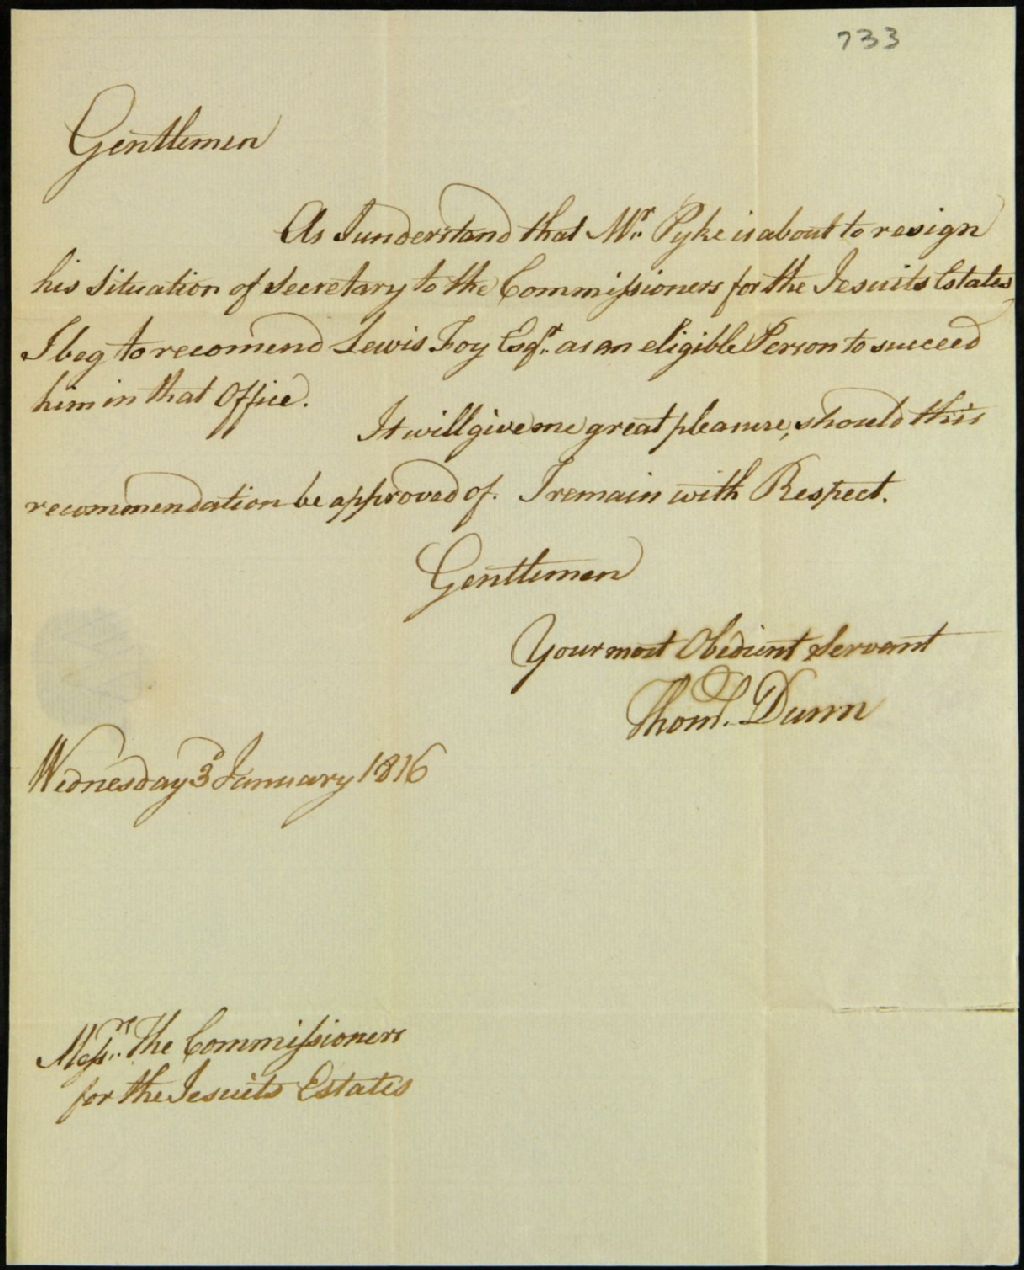 733
Gentlemen
As I understand that Mr. Pyke is about to resign
his situation of Secretary to the Commissioners for the Jesuits Estates
I beg to recomend Lewis Foy Esqr. as an eligible Person to succeed
him in that Office.
It will give me great pleasure, should this
recommendation be approved of. I remain with Respect.
Gentlemen
Your most Obedient Servant
Thoms. Dunn
Wednesday 3d January 1816
Messrs. The Commissioners
for the Jesuits Estates